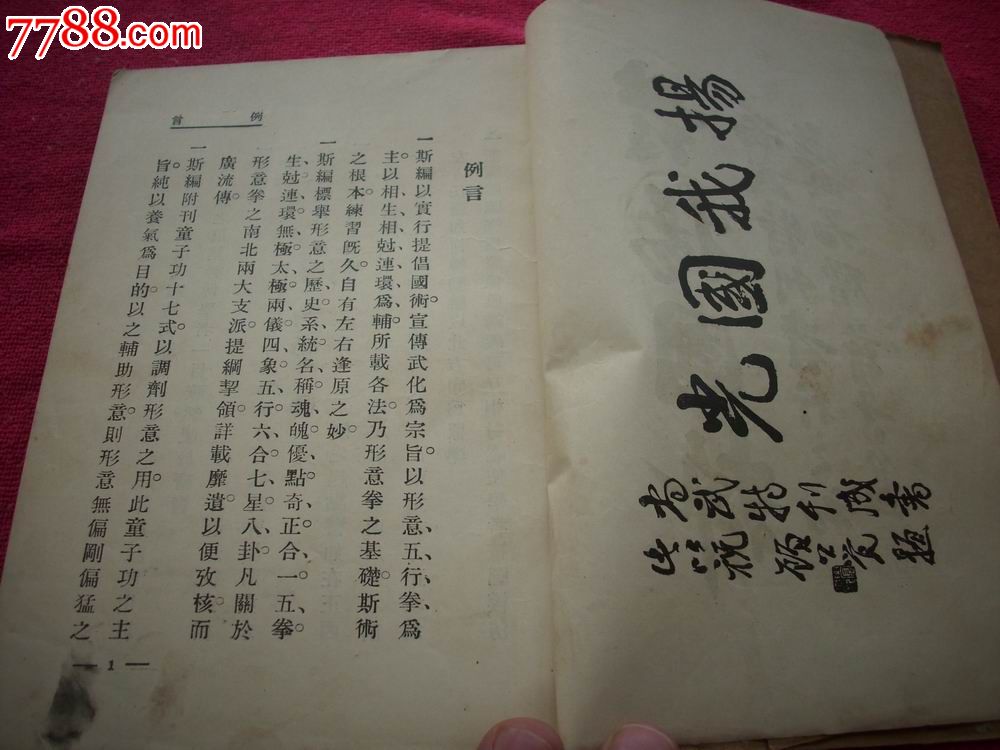 7788.com
揚我國光
例言
例言
一斯編以實行提倡國術。宣傳武化爲宗旨。以形意、五行、拳、爲
主。以相生、相尅、連環、爲輔。所載各法。乃形意拳之基礎。斯術
之根本。練習既久。自有左右逢原之妙。
一斯編標舉形意之歷史、系統、名稱、魂、魄、優、點、奇、正、合、一、五、拳。
生、尅、連、環、無、極、太、極、兩、儀、四、象、五、行、六、合、七、星、八、卦。凡關於
形意拳之南北兩大支派。提綱挈領。詳載靡遺。以便攷核。而
廣流傳。
一斯編附刊童子功十七式。以調劑形意之用。此童子功之主
旨。純以養氣爲目的。以之輔助形意。則形意無偏剛偏猛之
— 1 —